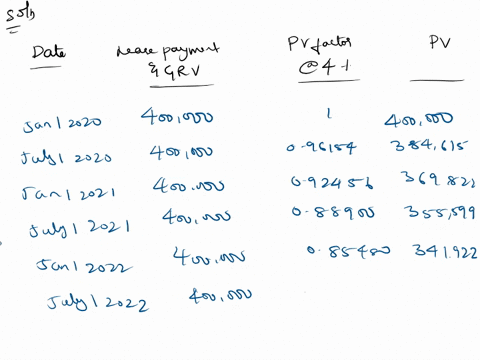 Soln
Date Lease payment & GRV PV factor @ 4% PV
Jan 1 2020 400,000 1 400,000
July 1 2020 400,000 0.96154 384,615
Jan 1 2021 400,000 0.92456 369,822
July 1 2021 400,000 0.88900 355,599
Jan 1 2022 400,000 0.85480 341,922
July 1 2022 400,000